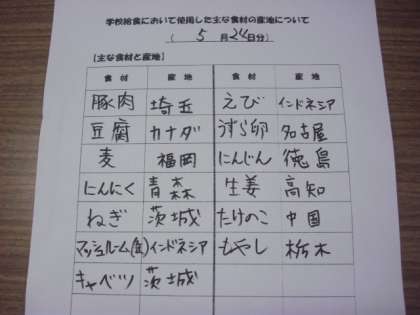 学校給食において使用した主な食材の産地について
( 5 月 24 日分)
【主な食材と産地】
食材 産地 食材 産地
豚肉 埼玉 えび インドネシア
豆腐 カナダ うずら卵 名古屋
麦 福岡 にんじん 徳島
にんにく 青森 生姜 高知
ねぎ 茨城 たけのこ 中国
マッシュルーム(缶) インドネシア もやし 栃木
キャベツ 茨城